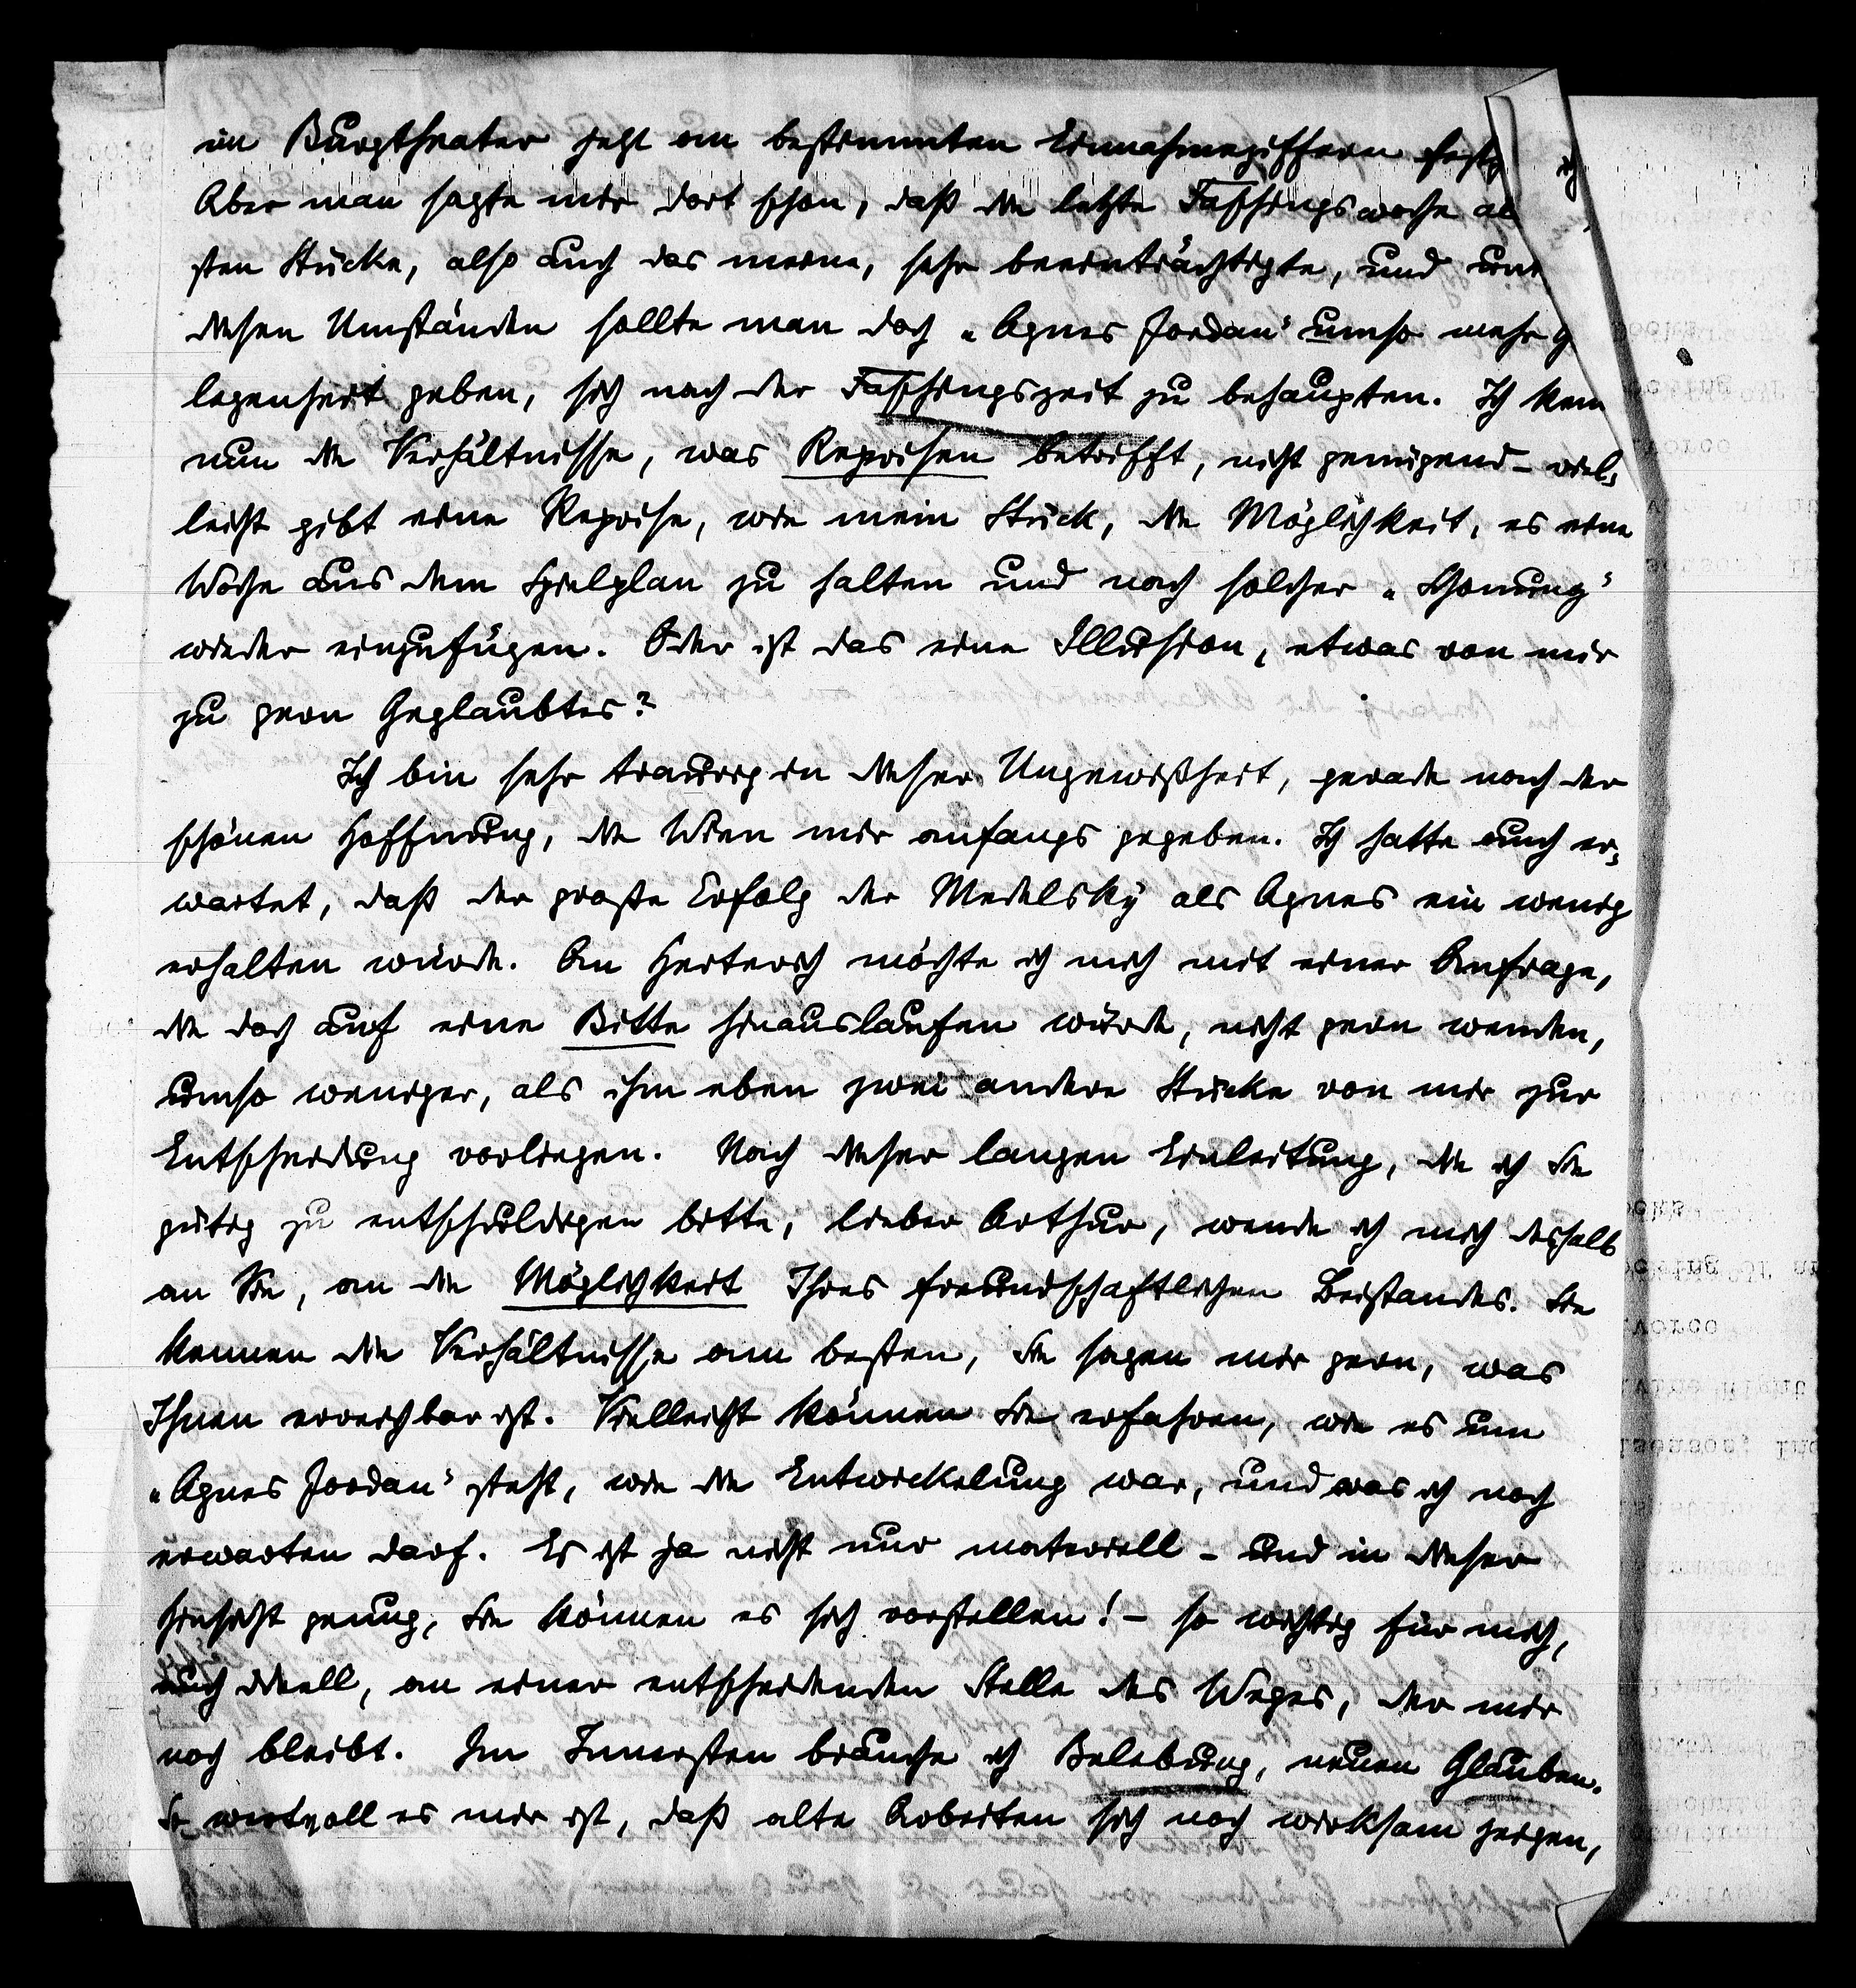 im Burgtheater jetzt an bestimmten Einnahmeziffern fest
Aber man sagte mir dort schon, daß die letzte Faschingswoche al
sten Stücke, also auch das meine, sehr beeinträchtigte, und unt
diesen Umständen sollte man doch „Agnes Jordan" umso mehr G
legenheit geben, sich nach der Faschingszeit zu behaupten. Ich kenn
nun die Verhältnisse, was Reprisen betrifft, nicht genügend – viel-
leicht gibt eine Reprise, wie mein Stück, die Möglichkeit, es eine
Woche aus dem Spielplan zu halten und nach solcher „Schonung"
wieder einzufügen. Oder ist das eine Illusion, etwas von mir
zu gern Geglaubtes?
Ich bin sehr traurig in dieser Ungewißheit, gerade nach der
schönen Hoffnung, die Wien mir anfangs gegeben. Ich hatte auch er-
wartet, daß der große Erfolg der Medelsky als Agnes ein wenig
erhalten würde. An Herterich möchte ich mich mit einer Anfrage,
die doch auf eine Bitte hinauslaufen würde, nicht gern wenden,
umso weniger, als ihm eben zwei andere Stücke von mir zur
Entscheidung vorliegen. Nach dieser langen Einleitung, die ich Sie
gütig zu entschuldigen bitte, lieber Arthur, wende ich mich deshalb
an Sie, an die Möglichkeit Ihres freundschaftlichen Beistandes. Sie
kennen die Verhältnisse am besten, Sie sagen mir gern, was
Ihnen erreichbar ist. Vielleicht können Sie erfahren, wie es um
„Agnes Jordan" steht, wie die Entwickelung war, und was ich noch
erwarten darf. Es ist ja nicht nur materiell – und in dieser
Hinsicht genug, Sie können es sich vorstellen! – so wichtig für mich,
auch ideell, an einer entscheidenden Stelle des Weges, der mir
noch bleibt. Im Innersten brauche ich Belebung, neuen Glauben.
So wertvoll es mir ist, daß alte Arbeiten sich noch wirksam zeigen,